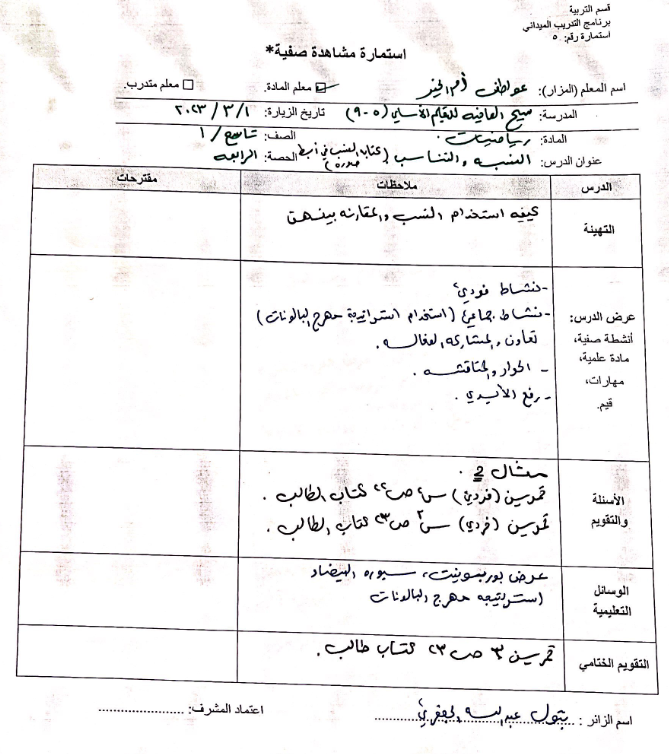 قسم التربية
برنامج التدريب الميداني
استمارة رقم: ٥
استمارة مشاهدة صفية*
اسم المعلم (المزار): عواطف أم الخير ☑ معلم المادة. ☐ معلم متدرب.
المدرسة: صيح العافية للتعليم الأساسي (٥-٩) تاريخ الزيارة: ١ / ٣ / ٢٠٢٣
المادة: رياضيات. الصف: تاسع / ١
عنوان الدرس: النسبة والتناسب (كتابة النسب في أبسط صورة) الحصة: الرابعة
الدرس ملاحظات مقترحات
التهيئة
كيفيه استخدام النسب والمقارنه بينهن
عرض الدرس:
أنشطة صفية،
مادة علمية،
مهارات،
قيم.
- نشاط فردي
- نشاط جماعي (استخدام استراتيجية مهرج البالونات)
تعاون والمشاركه الفعاله.
- الحوار والمناقشه.
- رفع الأيدي.
الأسئلة
والتقويم
مثال 2.
تمرين (فردي) س٢ ص٢٢ كتاب الطالب.
تمرين (فردي) س٣ ص٢٣ كتاب الطالب.
الوسائل
التعليمية
عرض بوربوينت، سبوره البيضاء
استراتيجيه مهرج البالونات
التقويم الختامي
تمرين ٣ ص ٢٣ كتاب طالب.
اسم الزائر : بتول عبدالله الجعفري اعتماد المشرف: ......................